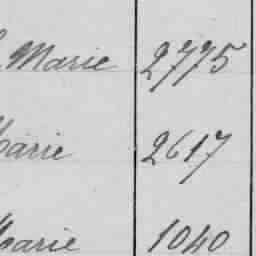 Marie 2775
Marie 2617
Marie 1040